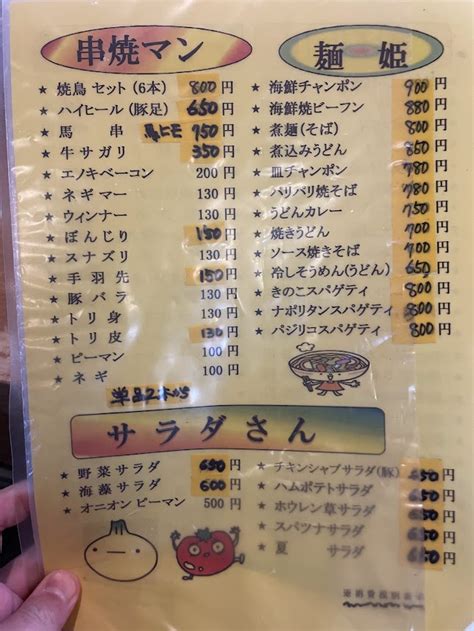 串焼マン
★ 焼鳥 セット(6本) 800円
★ ハイヒール(豚足) 650円
★ 馬 串 馬ヒモ 750円
★ 牛サガリ 350円
★ エノキベーコン 200円
★ ネギマー 130円
★ ウィンナー 130円
★ ぼんじり 150円
★ スナズリ 130円
★ 手羽先 150円
★ 豚バラ 130円
★ トリ身 130円
★ トリ皮 130円
★ ピーマン 100円
★ ネギ 100円
単品2本から
麺 姫
★ 海鮮チャンポン 900円
★ 海鮮焼ビーフン 880円
★ 煮麺(そば) 800円
★ 煮込みうどん 780円
★ 皿チャンポン 780円
★ パリパリ焼そば 780円
★ うどんカレー 750円
★ 焼きうどん 700円
★ ソース焼きそば 700円
★ 冷しそうめん(うどん) 650円
★ きのこスパゲティ 800円
★ ナポリタンスパゲティ 800円
★ バジリコスパゲティ 800円
サラダさん
★ 野菜サラダ 650円
★ 海藻サラダ 600円
★ オニオンピーマン 500円
★ チキンシャブサラダ(豚) 650円
★ ハムポテトサラダ 650円
★ ホウレン草サラダ 650円
★ スパツナサラダ 650円
★ 夏 サラダ 650円